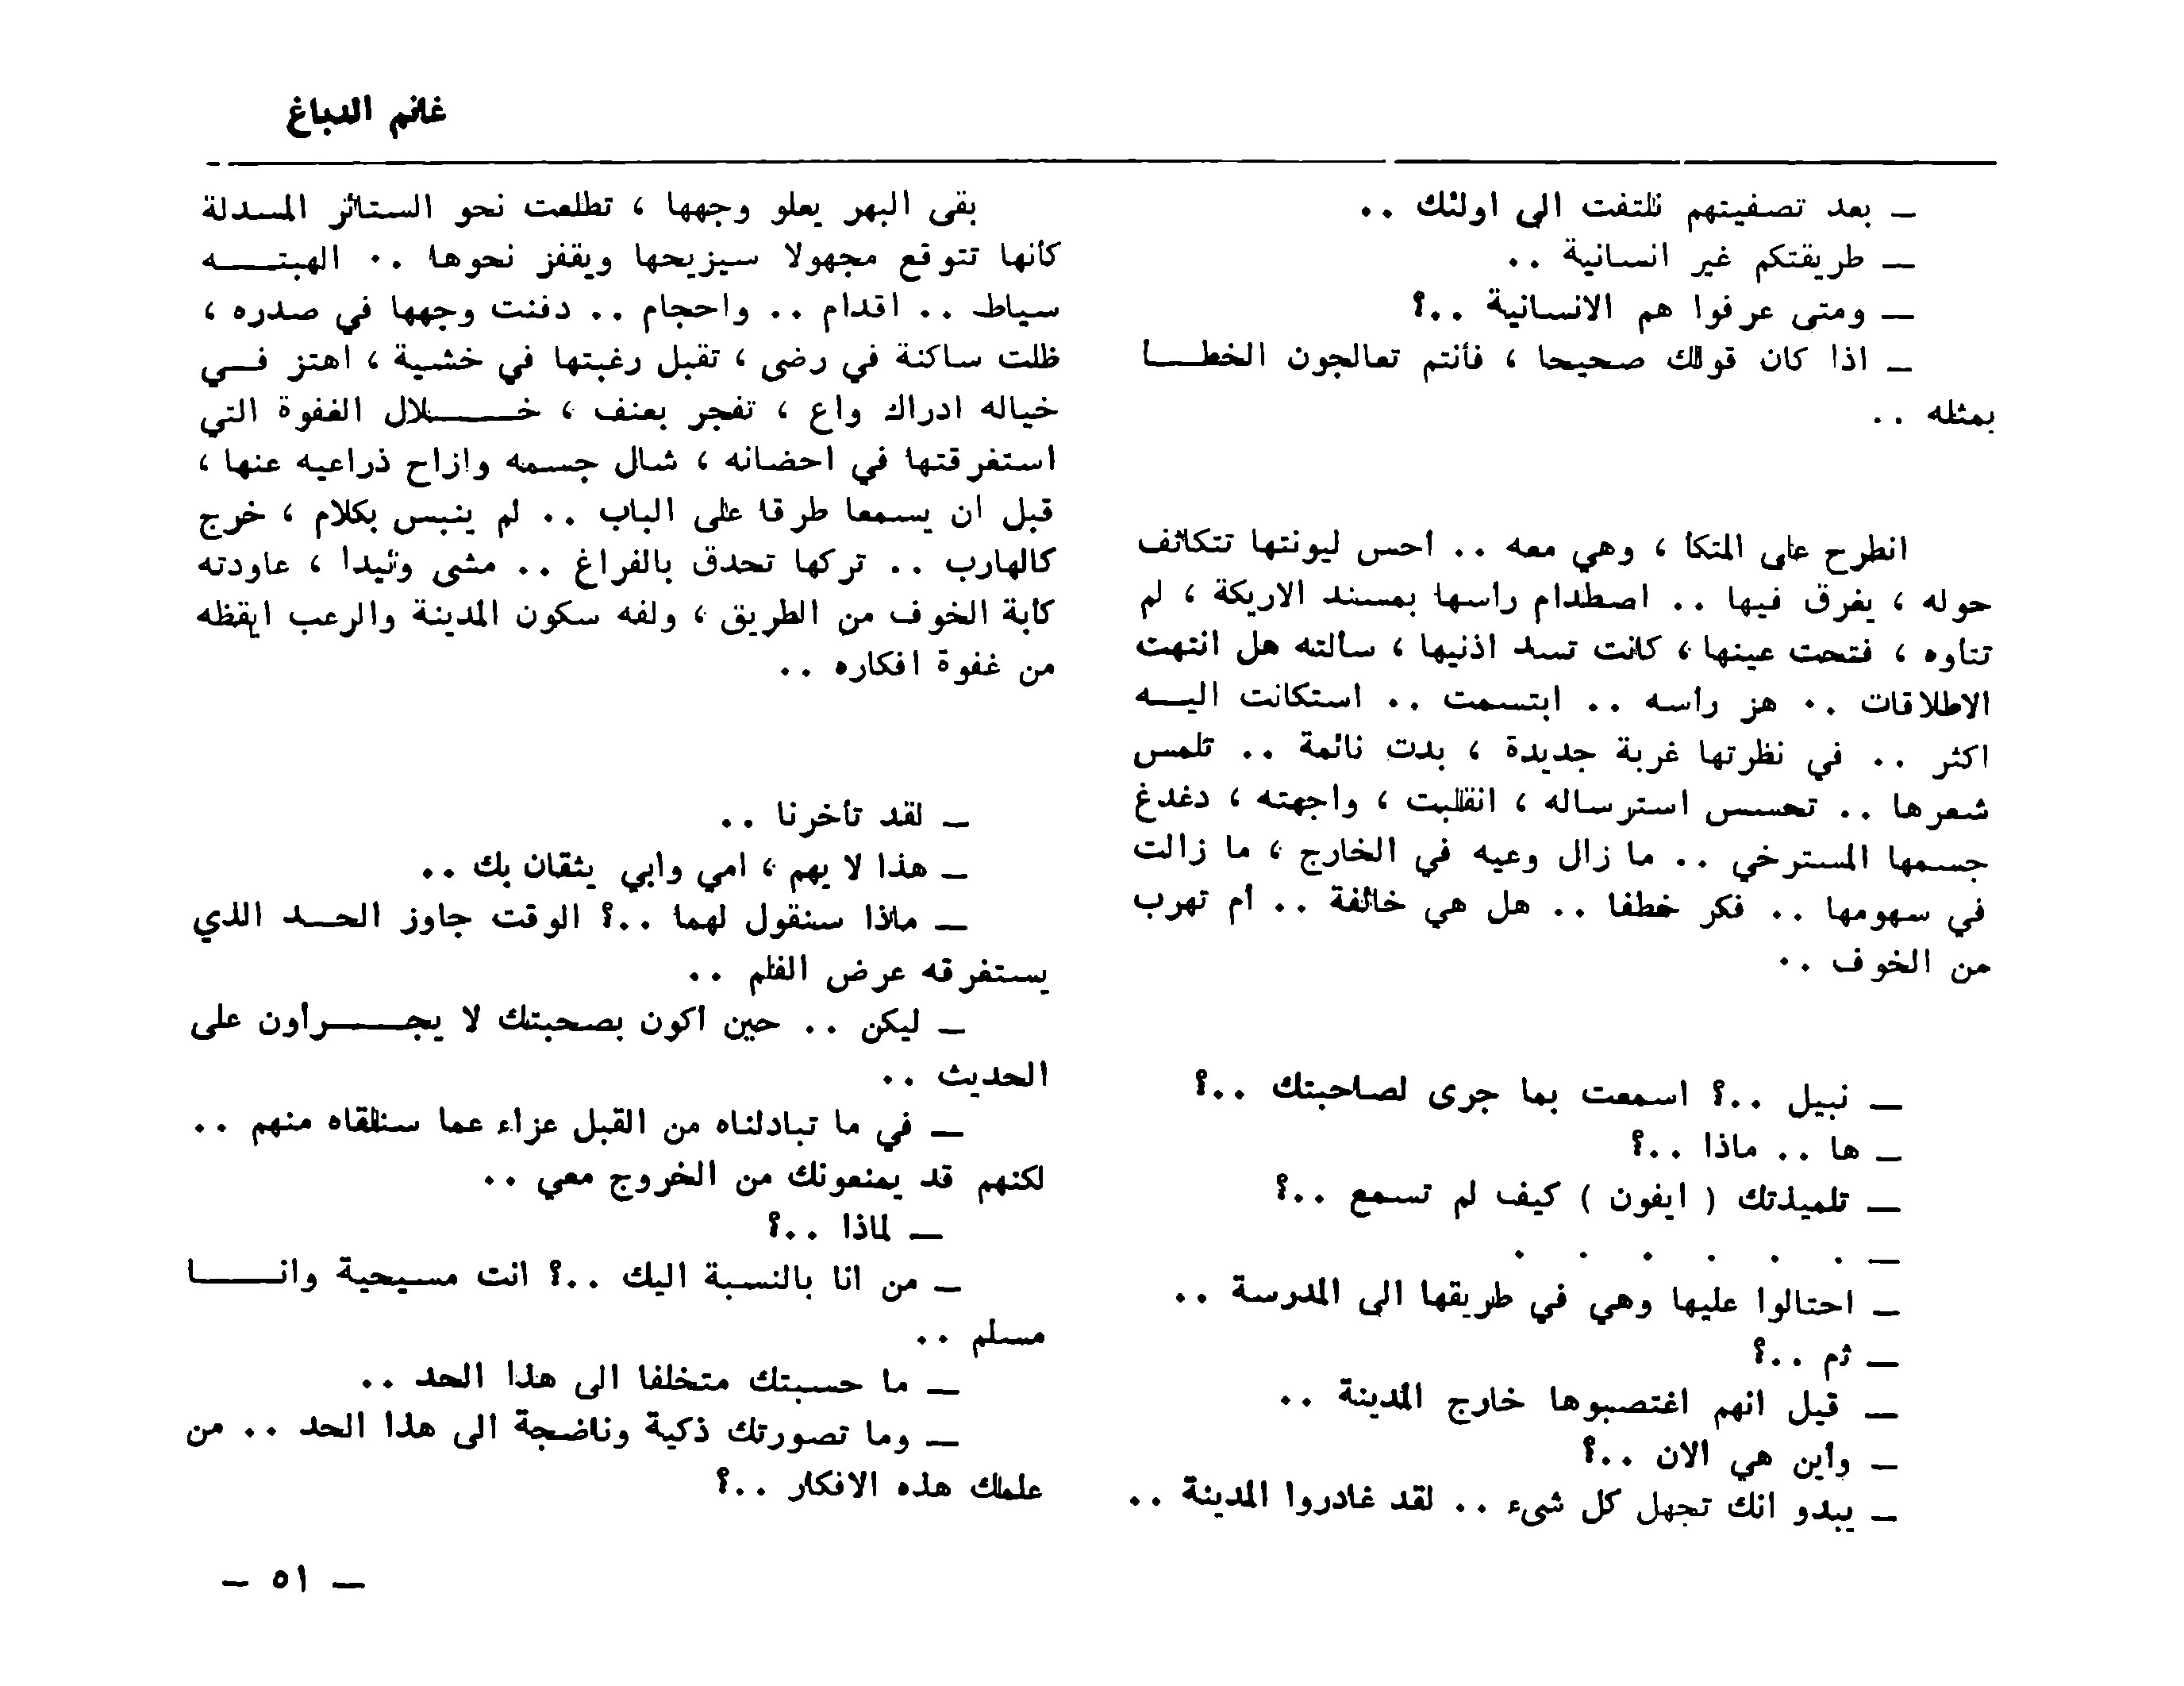 غانم الدباغ
ـ بعد تصفيتهم نلتفت الى اولئك ..
ـ طريقتكم غير انسانية ..
ـ ومتى عرفوا هم الانسانية ..؟
ـ اذا كان قولك صحيحا ، فأنتم تعالجون الخطـــا
بمثله ..
انطرح على المتكأ ، وهي معه .. احس ليونتها تتكاثف
حوله ، يغرق فيها .. اصطدام راسها بمسند الاريكة ، لم
تتاوه ، فتحت عينها ، كانت تسد اذنيها ، سالته هل انتهت
الاطلاقات .. هز راسه .. ابتسمت .. استكانت اليــه
اكثر .. في نظرتها غربة جديدة ، بدت نائمة .. تلمس
شعرها .. تحسس استرساله ، انقلبت ، واجهته ، دغدغ
جسمها المسترخي .. ما زال وعيه في الخارج ، ما زالت
في سهومها .. فكر خطفا .. هل هي خائفة .. أم تهرب
من الخوف ..
ـ نبيل ..؟ اسمعت بما جرى لصاحبتك ..؟
ـ ها .. ماذا ..؟
ـ تلميذتك ( ايفون ) كيف لم تسمع ..؟
ـ . . . . . .
ـ احتالوا عليها وهي في طريقها الى المدرسة ..
ـ ثم ..؟
ـ قيل انهم اغتصبوها خارج المدينة ..
ـ وأين هي الان ..؟
ـ يبدو انك تجهل كل شىء .. لقد غادروا المدينة ..
بقى البهر يعلو وجهها ، تطلعت نحو الستائر المسدلة
كأنها تتوقع مجهولا سيزيحها ويقفز نحوها .. الهبتـــه
سياط .. اقدام .. واحجام .. دفنت وجهها في صدره ،
ظلت ساكنة في رضى ، تقبل رغبتها في خشية ، اهتز فــي
خياله ادراك واع ، تفجر بعنف ، خـــــلال الغفوة التي
استغرقتها في احضانه ، شال جسمه وازاح ذراعيه عنها ،
قبل ان يسمعا طرقا على الباب .. لم ينبس بكلام ، خرج
كالهارب .. تركها تحدق بالفراغ .. مشى وئيدا ، عاودته
كأبة الخوف من الطريق ، ولفه سكون المدينة والرعب ايقظه
من غفوة افكاره ..
ـ لقد تأخرنا ..
ـ هذا لا يهم ، امي وابي يثقان بك ..
ـ ماذا سنقول لهما ..؟ الوقت جاوز الحــد الذي
يستغرقه عرض الفلم ..
ـ ليكن .. حين اكون بصحبتك لا يجـــــراون على
الحديث ..
ـ في ما تبادلناه من القبل عزاء عما سنلقاه منهم ..
لكنهم قد يمنعونك من الخروج معي ..
ـ لماذا ..؟
ـ من انا بالنسبة اليك ..؟ انت مسيحية وانـــــا
مسلم ..
ـ ما حسبتك متخلفا الى هذا الحد ..
ـ وما تصورتك ذكية وناضجة الى هذا الحد .. من
علمك هذه الافكار ..؟
ـ ٥١ ـ